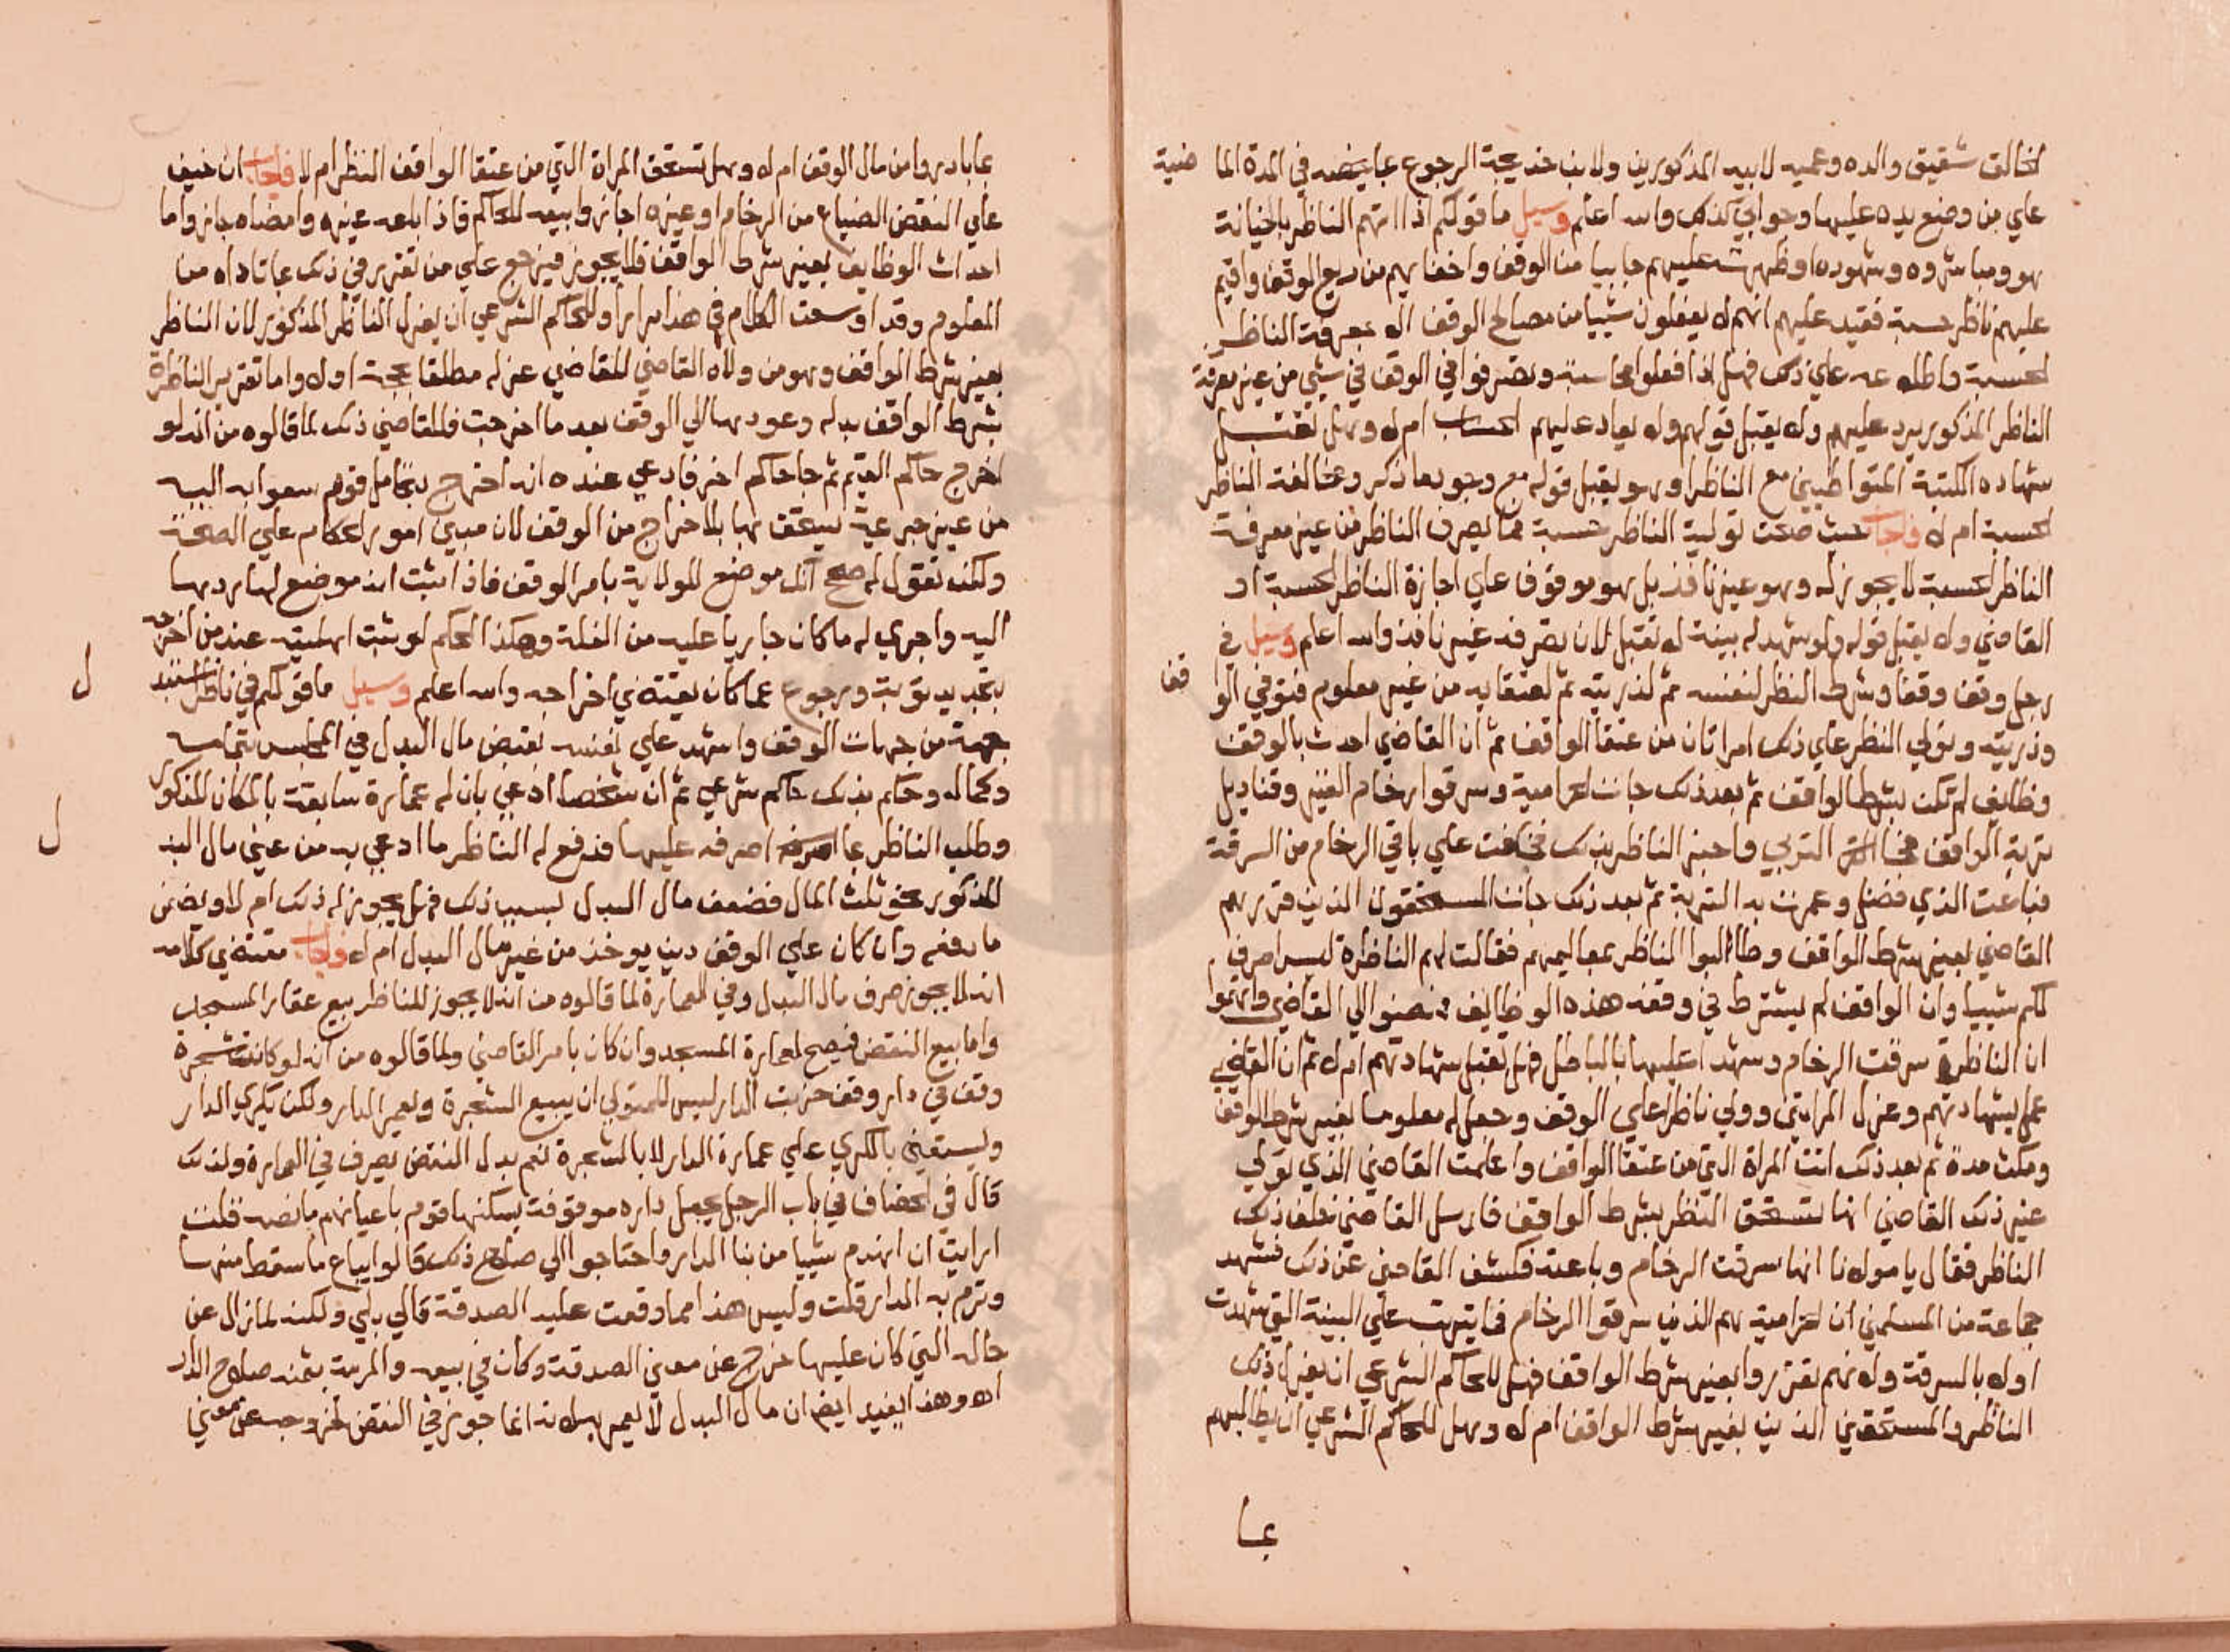 الخالق شقيق والده وعميه لابيه المذكورين ولابن خديجة الرجوع بما يخصه في المدة الما ضية
علي من وضع يده عليها وجوابي كذلك والله اعلم وسيل ما قولكم اذا اتهم الناظر بالخيانة
هو ومباشروه وشهوده اوظهرت عليهم خبايا من الوقف واخفايهم من ريع الوقف واقيم
عليهم ناظر حسبة فقيد عليهم انهم لا يفعلون شييا من مصالح الوقف الا بمعرفة الناظر
الحسبة واطلاعه علي ذلك فهل اذا فعلوا محاسبة وتصرفوا في الوقف في شيي من غير معرفة
الناظر المذكور يرد عليهم ولا يقبل قولهم ولا يعاد عليهم الحساب ام لا وهل تقبل
شهاده الكتبة المتواطيين مع الناظر او هو يقبل قوله مع وجود ما ذكر ومخالفة الناظر
الحسبة ام لا فاجاب حيث صحت تولية الناظر حسبة فما يصرف الناظر من غير معرفة
الناظر الحسبة لا يجوز له وهو غير نافذ بل هو موقوف علي اجازة الناظر الحسبة او
القاضي ولا يقبل قوله ولو شهد له بينة لا تقبل لان تصرفه غير نافذ والله اعلم وسيل في
رجل وقف وقفا وشرط النظر لنفسه ثم لذريته ثم لعتقايه من غير معلوم فتوفي الوا قف
وذريته وتولي النظر علي ذلك امراتان من عتقا الواقف ثم ان القاضي احدث بالوقف
وظايف لم تكن بشرط الواقف ثم بعد ذلك جات الحرامية وسرقوا رخام الفيز وقناديل
تربة الواقف فجا التربي واخبر الناظر بذلك فخافت علي باقي الرخام من السرقة
فباعت الذي فضل وعمرت به التربة ثم بعد ذلك جات المستحقون الذين قررهم
القاضي بغير شرط الواقف وطالبوا الناظر بمعاليمهم فقالت لهم الناظرة ليس اصرف
لكم شييا وان الواقف لم يشترط في وقفه هذه الوظايف فمضوا الي القاضي واتهموا
ان الناظرة سرقت الرخام وشهدا عليها بالباطل فهل تقبل شهادتهم ام لا ثم ان القاضي
عمل بشهادتهم وعزل المراتين وولي ناظرا علي الوقف وجعل له معلوما بغير شرط الوقف
ومكث مدة ثم بعد ذلك اتت المراة التي من عتقا الواقف واعلمت القاضي الذي تولي
غير ذلك القاضي انها تستحق النظر بشرط الواقف فارسل القاضي خلف ذلك
الناظر فقال يا مولانا انها سرقت الرخام وباعته فكشف القاضي عن ذلك فشهد
جماعة من المسلمين ان الحرامية هم الذين سرقوا الرخام علي البينة التي شهدت
اولا بالسرقة ولانهم تقرروا بغير شرط الواقف فهل للحاكم الشرعي ان يعزل ذلك
الناظر والمستحقين الذين بغير شرط الواقف ام لا وهل للحاكم الشرعي ان يطالبهم
بما
بما بادروا من مال الوقف ام لا وهل تستحق المراة التي من عتقا الواقف النظر ام لا فاجاب ان خيف
علي النقض الضياع من الرخام او غيره اجازوا بيعه للحاكم فاذا باعه غيره وامضاه جاز واما
احداث الوظايف بغير شرط الواقف فلا يجوز فيرجع علي من تقرر في ذلك بما تاداه من
المعلوم وقد اوسعت الكلام في هذا مرارا وللحاكم الشرعي ان يعزل الناظر المذكور لان الناظر
بغير شرط الواقف وهو من ولاه القاضي للقاضي عزله مطلقا بجنحة اولا واما تقرير الناظرة
بشرط الواقف بدله وعودها الي الوقف بعد ما اخرجت فللقاضي ذلك لما قالوه من انه لو
اخرج حاكم القيم ثم جا حاكم اخر فادعي عنده انه اخرج بتحامل قوم سعوا به اليه
من غير جرعية يستحق بها بالاخراج من الوقف لان مبني امور الحكام علي الصحة
ولكنه تقول له صحح انك موضع للولاية بامر الوقف فاذا اثبت انه موضع لها ردها
اليه واجري له ما كان جاريا عليه من الغلة وهكذا الحكم لو ثبت اهليته عند من اخرجه
بتجديد توبة ورجوع عما كان يقتضي اخراجه والله اعلم وسيل ما قولكم في ناظر استبد
جهة من جهات الوقف واشهد علي نفسه بقبض مال البدل في المجلس بتمامه
وكماله وحكم بذلك حاكم شرعي ثم ان شخصا ادعي بان له عمارة سابقة بالمكان المذكور
وطلب الناظر بما اصرفه عليها فدفع له الناظر ما ادعي به من عين مال البد
المذكور نحو ثلث المال فضعف مال البدل بسبب ذلك فهل يجوز له ذلك ام لا ويضمن
ما دفعه وان كان علي الوقف دين يوخذ من غير مال البدل ام لا فاجاب مقتضي كلامه
انه لا يجوز صرف مال البدل وفي العمارة لما قالوه من انه لا يجوز للناظر بيع عقار المسجد
واما بيع النقض فيصح لعمارة المسجد وان كان بامر القاضي ولما قالوه من انه لو كانت شجرة
وقف في دار وقف خربت الدار ليس للمتولي ان يبيع الشجرة ويعمر الدار ولكن يكري الدار
ويستعين بالكري علي عمارة الدار لا بالشجرة نعم بدل النقض يصرف في العمارة ولذلك
قال في الخصاف في باب الرجل يجعل داره موقوفة يسكنها قوم باعيانهم ما نصه قلت
ارايت ان انهدم شييا من بنا الدار واحتاجوا الي صلاح ذلك قالوا يباع ما سقط منها
وترم به الدار قلت وليس هذا مما وقعت عليه الصدقة قالي بلي ولكنه لما زال عن
حاله التي كان عليها خرج عن معني الصدقة وكان في بيعه والمرمة بثمنه صلاح الدار
اه وهذا يفيد ايضا ان مال البدل لا يعمر به لانه انما جوز في النقض لخروجه عن معني
ل
ل